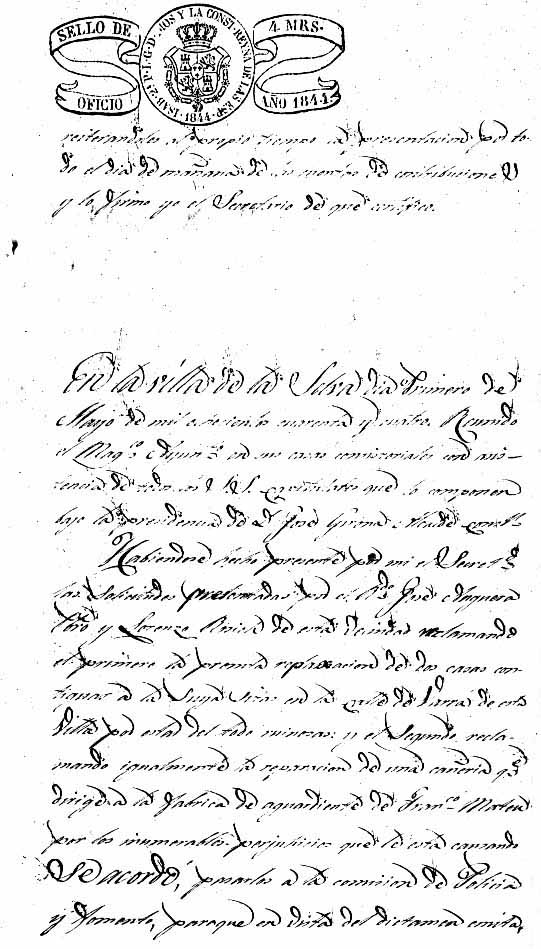 SELLO DE OFICIO
ISAB. 2ª P. L. G. D. DIOS Y LA CONST. REYNA DE LAS ESP. 1844
4. MRS. AÑO 1844.
reiterandoles al propio tiempo la presentacion por to-
do el dia de mañana de las cuentas de contribuciones
y lo firmo yo el Secretario de que certifico.
En la villa de la Selva dia Primero de
Mayo de mil ochocientos cuarenta y cuatro. Reunido
el Magº Ayunº en sus casas consistoriales con asis-
tencia de todos los S.S. Capitulares que lo componen
bajo la presidencia de Dn José Alcalde Constl.
Habiendose hecho presente por mi el Secretº
las Solicitudes presentadas por el Rdo José
Pbro y Lorenzo de esta vecindad reclamando
el primero la pronta reparacion de dos casas con-
tiguas a la Suya sitas en la calle de Parra de esta
Villa por estar del todo ruinosas: y el Segundo recla-
mando igualmente la reparacion de una cañeria qe
dirige a la fabrica de aguardiente de Franº Mateu
por los inumerables perjuicios que le esta causando
Se acordó, pasarlos a la comision de Policia
y fomento, paraque en vista del dictamen emita,